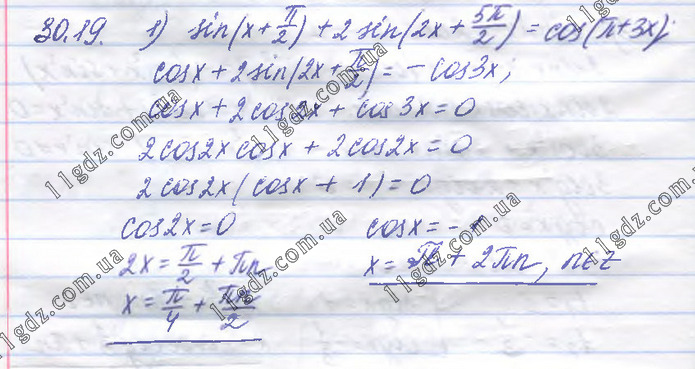 30.19. 1) sin(x + π/2) + 2 sin(2x + 5π/2) = cos(π + 3x);
cosx + 2 sin(2x + π/2) = - cos3x;
cosx + 2cos2x + cos3x = 0
2cos2x cosx + 2cos2x = 0
2cos2x (cosx + 1) = 0
cos2x = 0
2x = π/2 + πn
x = π/4 + πn/2
cosx = -
x = π + 2πn, n∈Z
11gdz.com.ua
11gdz.com.ua
11gdz.com.ua
11gdz.com.ua
11gdz.com.ua
11gdz.com.ua
11gdz.com.ua